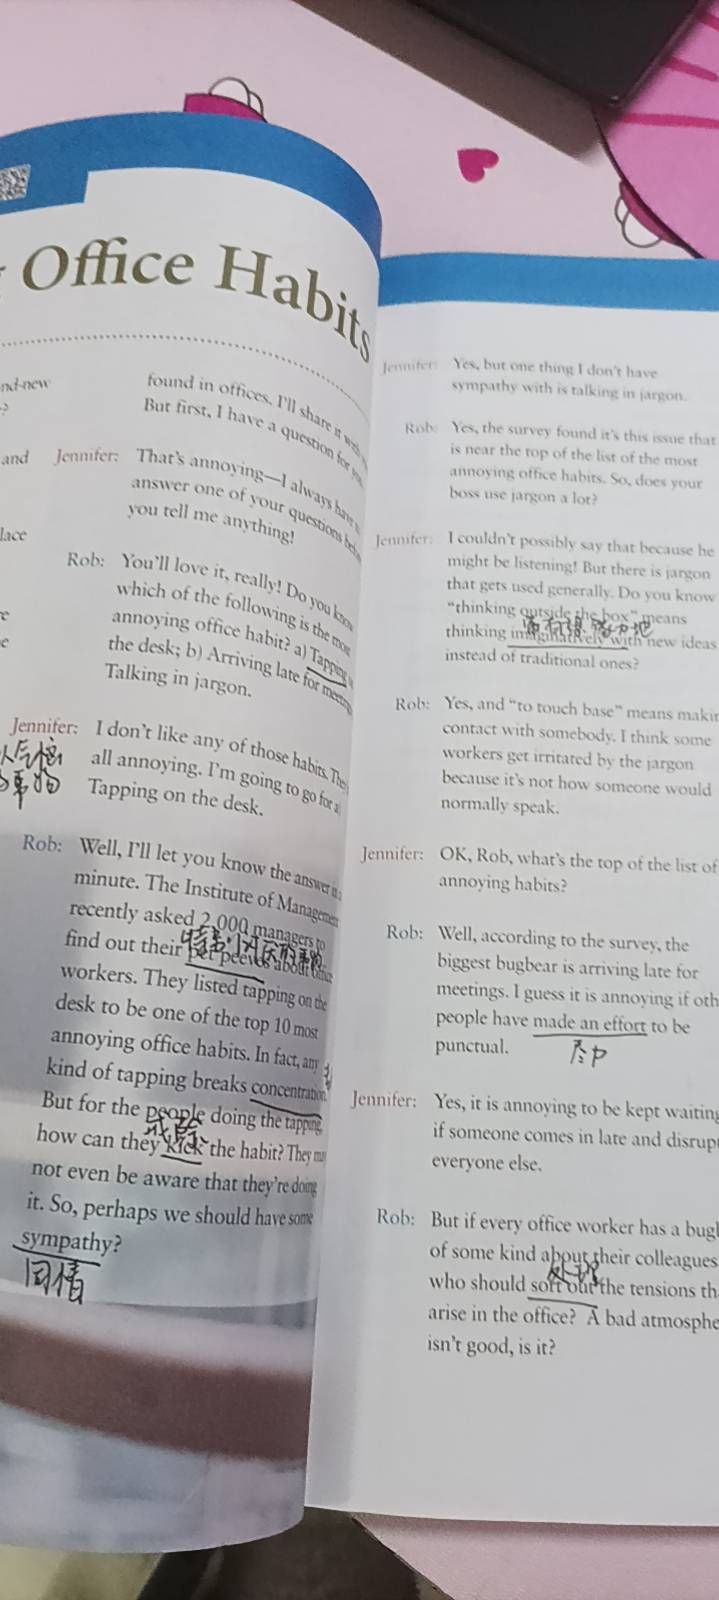 Office Habits
nd-new
?
and
lace
e
e
found in offices. I'll share it with
But first, I have a question for you
Jennifer: That's annoying—I always have
answer one of your questions
you tell me anything!
Rob: You'll love it, really! Do you know
which of the following is the most
annoying office habit? a) Tapping
the desk; b) Arriving late for meeting
Talking in jargon.
Jennifer: I don't like any of those habits. They
all annoying. I'm going to go for a)
Tapping on the desk.
Rob: Well, I'll let you know the answer in a
minute. The Institute of Management
recently asked 2,000 managers to
find out their pet peeves about office
workers. They listed tapping on the
desk to be one of the top 10 most
annoying office habits. In fact, any
kind of tapping breaks concentration.
But for the people doing the tapping,
戒除
how can they kick the habit? They may
not even be aware that they're doing
it. So, perhaps we should have some
sympathy?
同情
Jennifer: Yes, but one thing I don't have
sympathy with is talking in jargon.
Rob: Yes, the survey found it's this issue that
is near the top of the list of the most
annoying office habits. So, does your
boss use jargon a lot?
Jennifer: I couldn't possibly say that because he
might be listening! But there is jargon
that gets used generally. Do you know
"thinking outside the box" means
thinking imaginatively with new ideas
instead of traditional ones?
Rob: Yes, and "to touch base" means makin
contact with somebody. I think some
workers get irritated by the jargon
because it's not how someone would
normally speak.
Jennifer: OK, Rob, what's the top of the list of
annoying habits?
Rob: Well, according to the survey, the
biggest bugbear is arriving late for
meetings. I guess it is annoying if oth
people have made an effort to be
punctual.
Jennifer: Yes, it is annoying to be kept waiting
if someone comes in late and disrup
everyone else.
Rob: But if every office worker has a bugb
of some kind about their colleagues
处理
who should sort out the tensions th
arise in the office? A bad atmosphe
isn't good, is it?